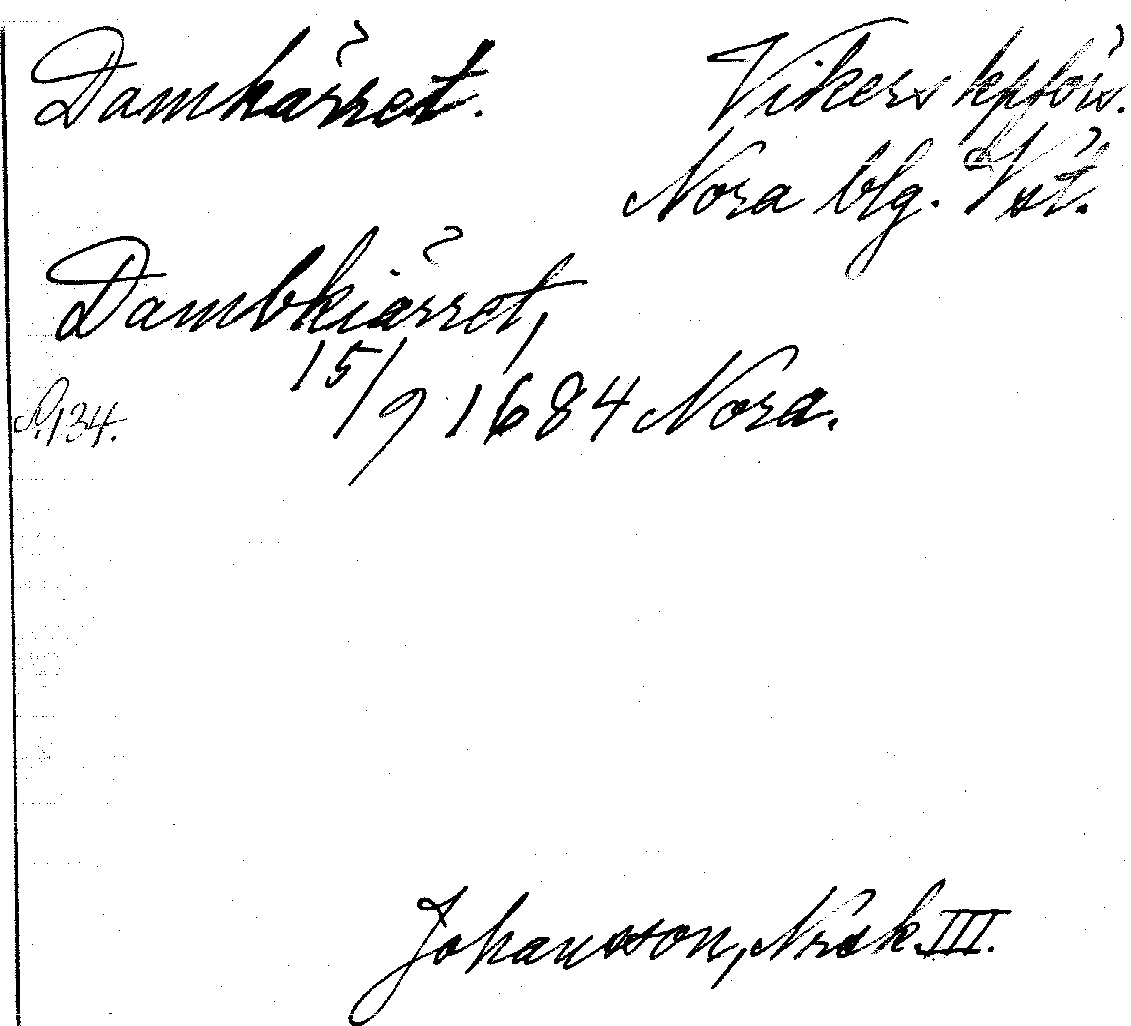 Damkärret. Vikers kpförs.
Nora blg. Vst.
Dambkiärret,
15/9 1684 Nora.
S. 134.
Johansson, Nrsk III.